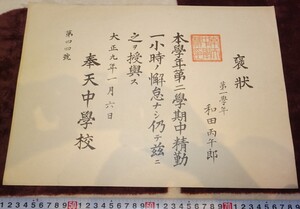 褒狀
第一學年
和田丙午郎
本學年第二學期中精勤
一小時ノ懈怠ナシ仍テ茲ニ
之ヲ授與ス
大正九年一月六日
奉天中學校
第四四號